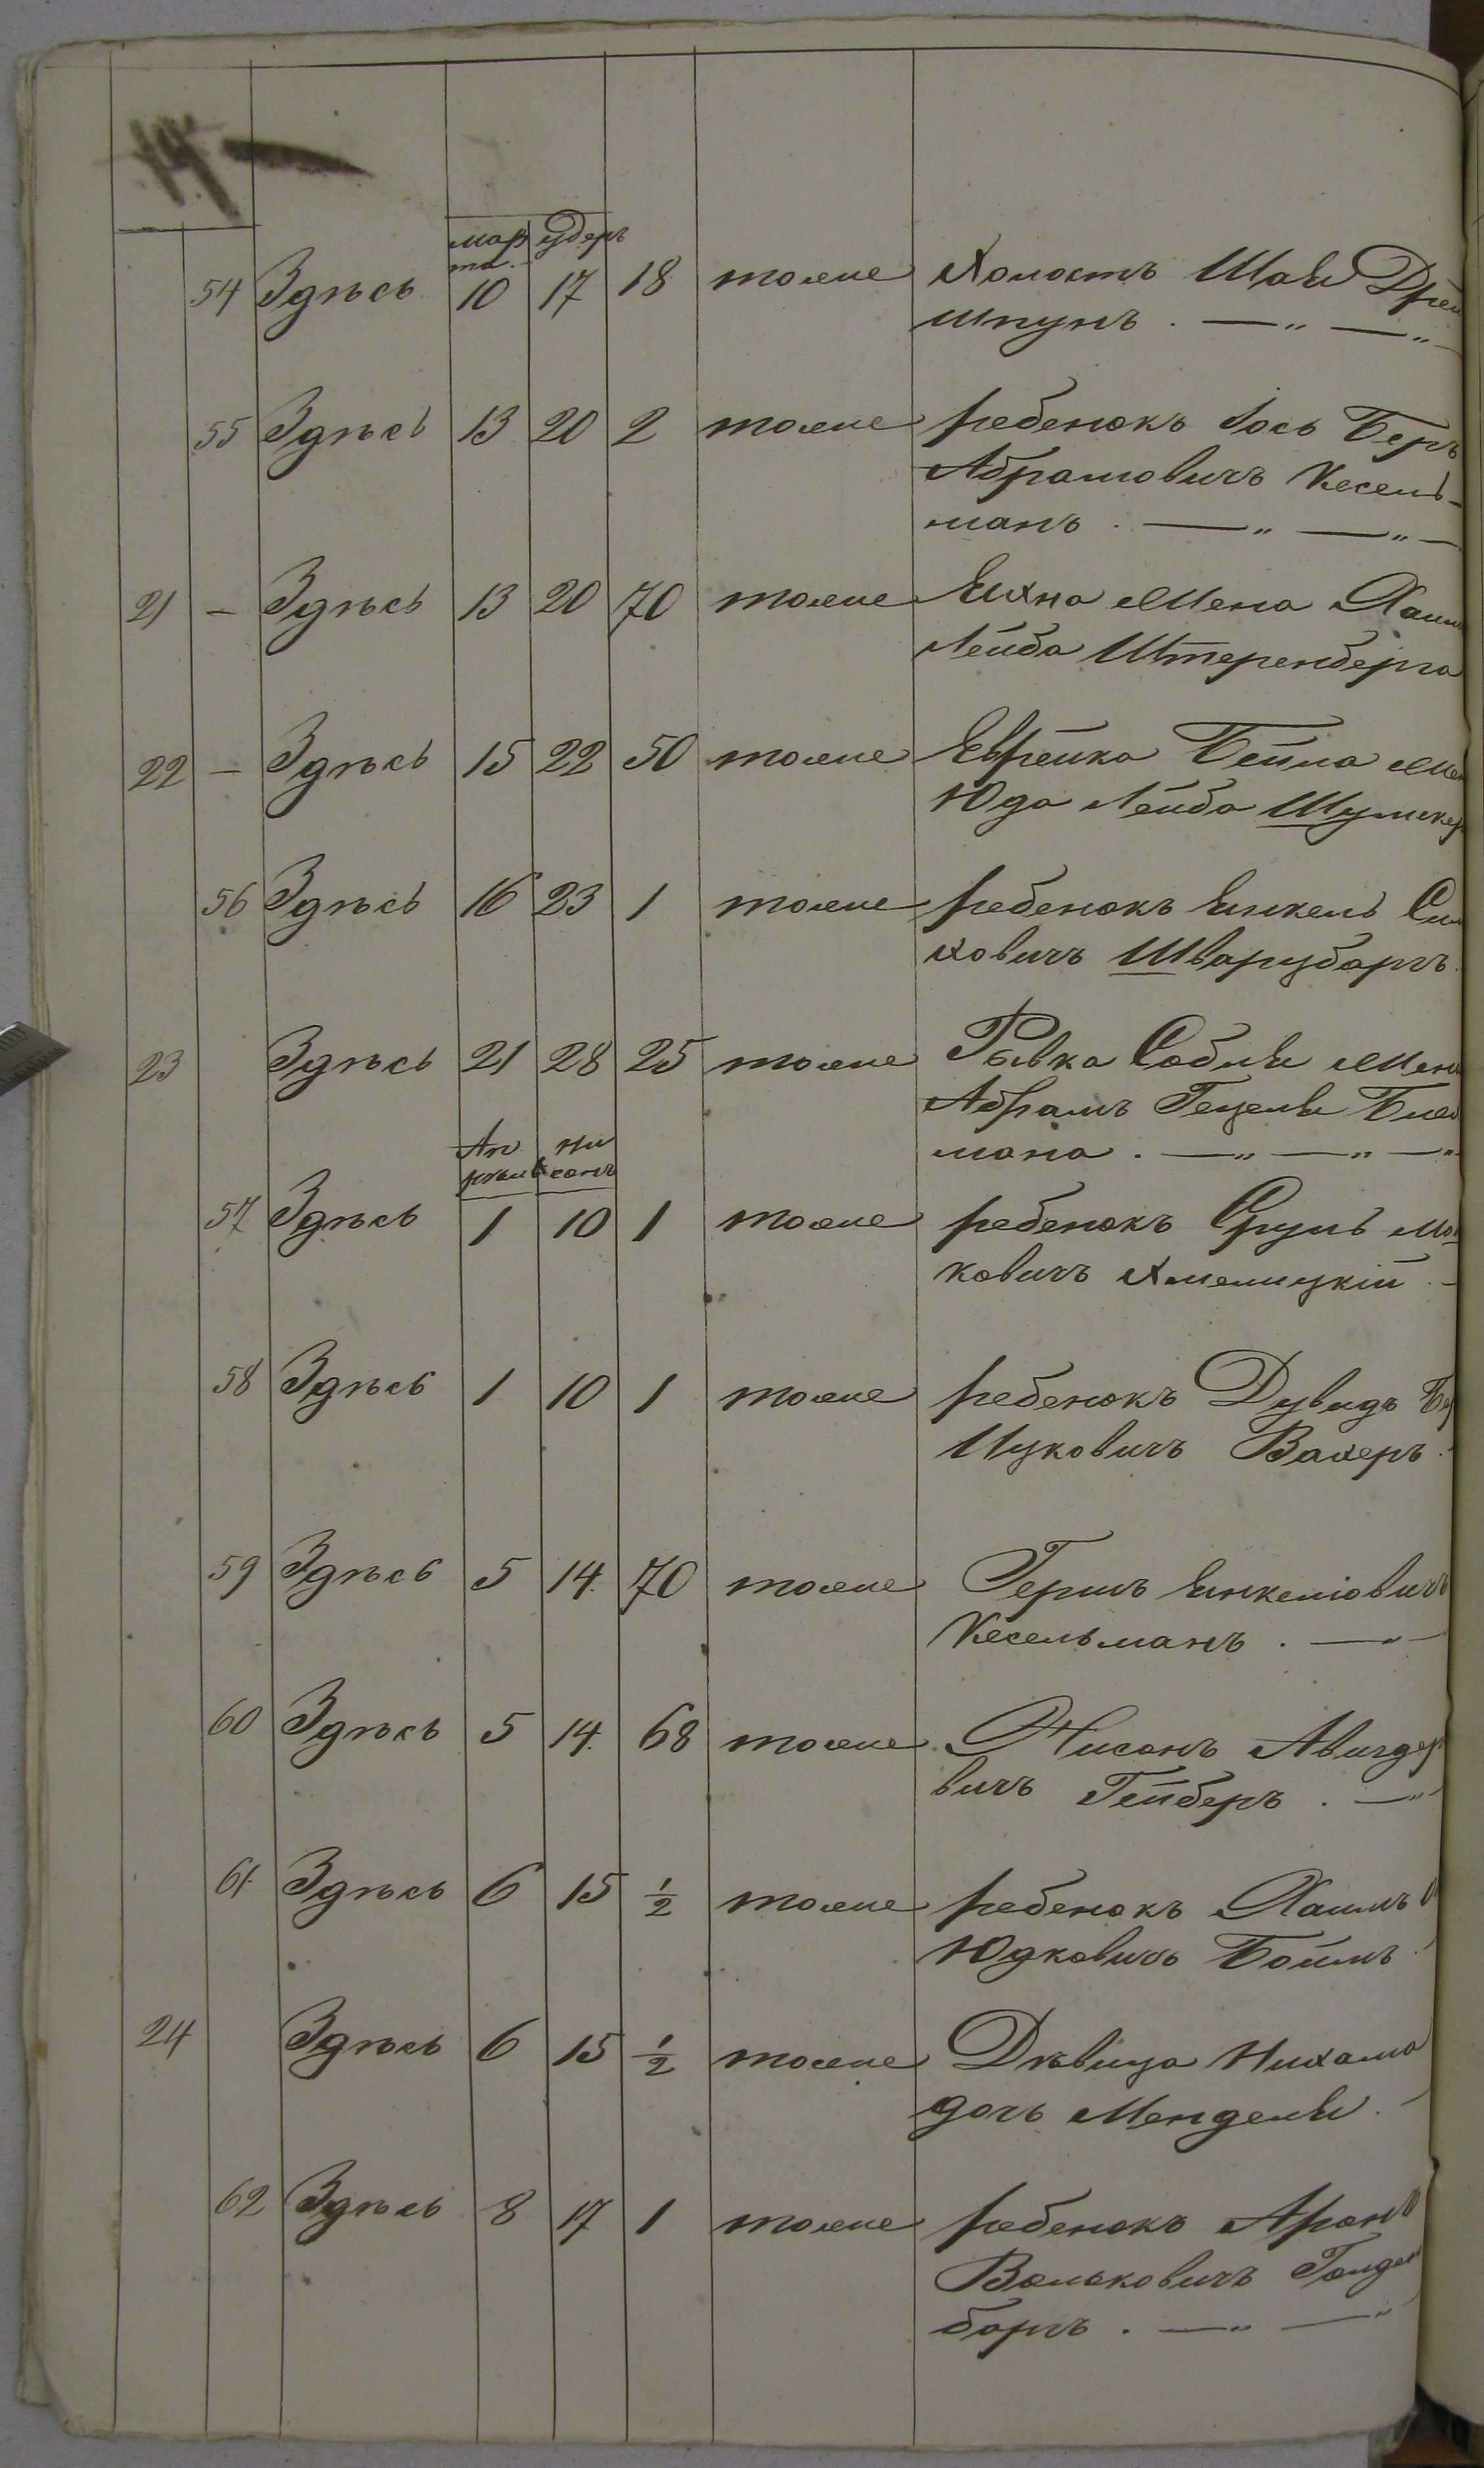 14
мар адеръ
та.
54 Здѣсь 10 17 18 тоже Холостъ Шая
шпунъ . — „ — „ —
55 Здѣсь 13 20 2 тоже ребенокъ Іось Беръ
Абрамовичъ Кесель-
манъ . — „ — „ —
21 — Здѣсь 13 20 70 тоже Яхна Жена Хаим
Лейба Штеренберга
22 — Здѣсь 15 22 50 тоже Еврейка Бейла Жен
Юда Лейба
56 Здѣсь 16 23 1 тоже ребенокъ Янкель
ховичъ Шварцборгъ
23 Здѣсь 21 28 25 тоже Рывка Собля Жена
Абрамъ Гецеля
мана . — „ — „ — „
Ап ни
рѣля санъ
57 Здѣсь 1 10 1 тоже ребенокъ Сруль Мош
ковичъ Хмелицкій . —
58 Здѣсь 1 10 1 тоже ребенокъ Дувидъ Бер
Ицковичъ Вахеръ .
59 Здѣсь 5 14. 70 тоже Гершъ Янкеліовичъ
Кесельманъ . — „ —
60 Здѣсь 5 14. 68 тоже Нисонъ Авигдор
вичъ Гейберъ . — „
61 Здѣсь 6 15 1/2 тоже ребенокъ Хаимъ
Юдковичъ Боймъ .
24 Здѣсь 6 15 1/2 тоже Дѣвица Нихама
дочь Менделя .
62 Здѣсь 8 17 1 тоже ребенокъ Аронъ
Вольковичъ Голден
боргъ . — „ — „